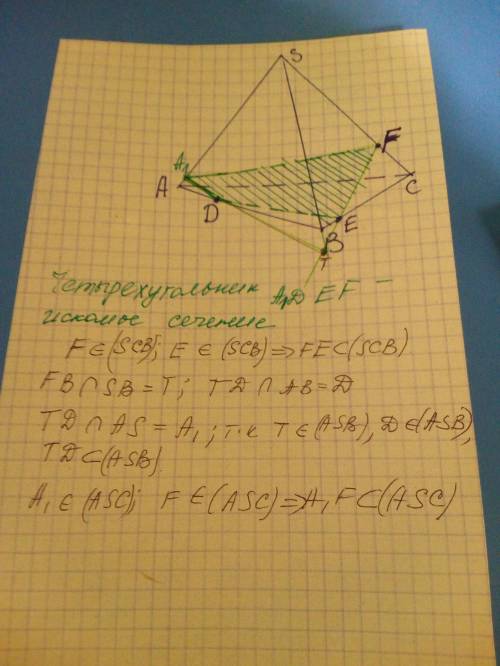 S
F
A₁
A
C
D
E
B
T
Четырехугольник A₁DEF –
искомое сечение
F∈(SCB); E∈(SCB)⇒FE⊂(SCB)
FB∩SB=T; TD∩AB=D
TD∩AS=A₁; т.к T∈(ASB), D∈(ASB),
TD⊂(ASB).
A₁∈(ASC); F∈(ASC)⇒A₁F⊂(ASC)